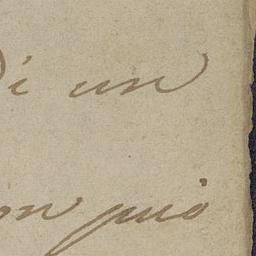 Di un
on può